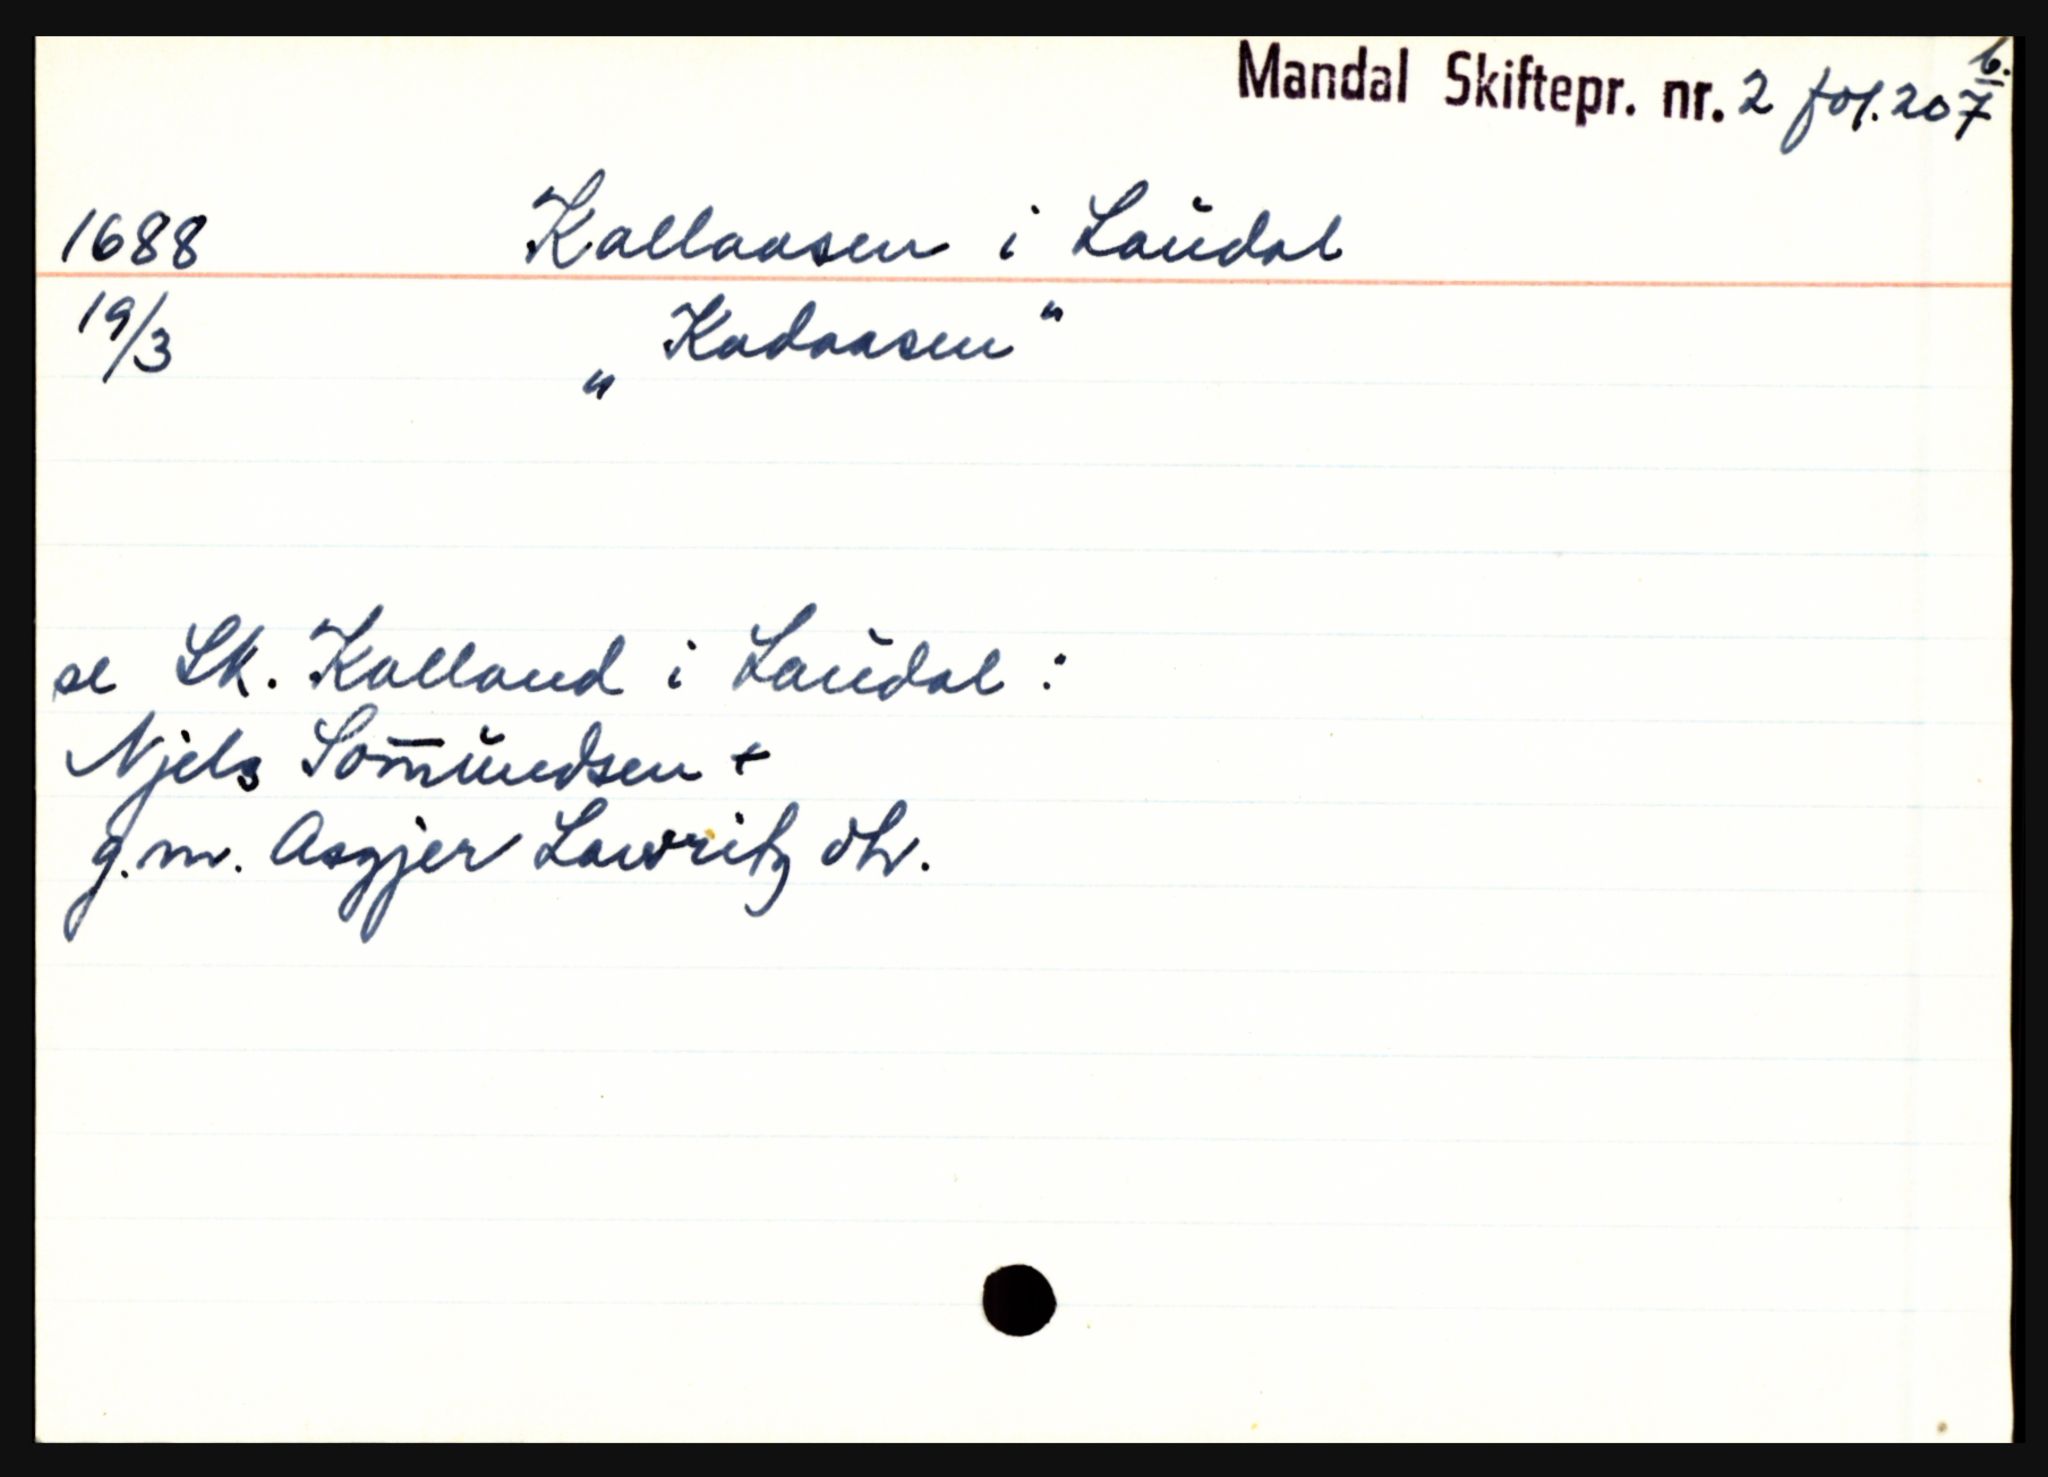 Mandal Skiftepr. nr. 2 fol. 207 b.
1688 Kallaasen i Laudal
19/3 „Kadaasen"
se Sk. Kalland i Laudal:
Njels Som̄undsen +
g.m. Asgjer Lawritz dtr.